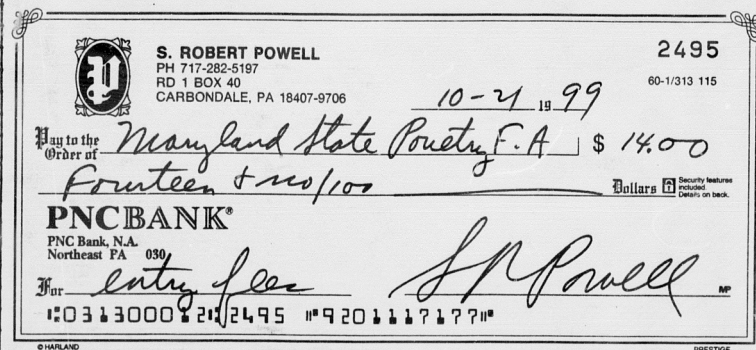 S. ROBERT POWELL
PH 717-282-5197
RD 1 BOX 40
CARBONDALE, PA 18407-9706
2495
60-1/313 115
10-21 19 99
Pay to the Order of Maryland State Poetry F.A $ 14.00
Fourteen + no/100 Dollars
Security features included. Details on back.
PNCBANK®
PNC Bank, N.A.
Northeast PA 030
For entry fees S R Powell MP
⑆031300012⑆2495 ⑈9201117177⑈
© HARLAND PRESTIGE